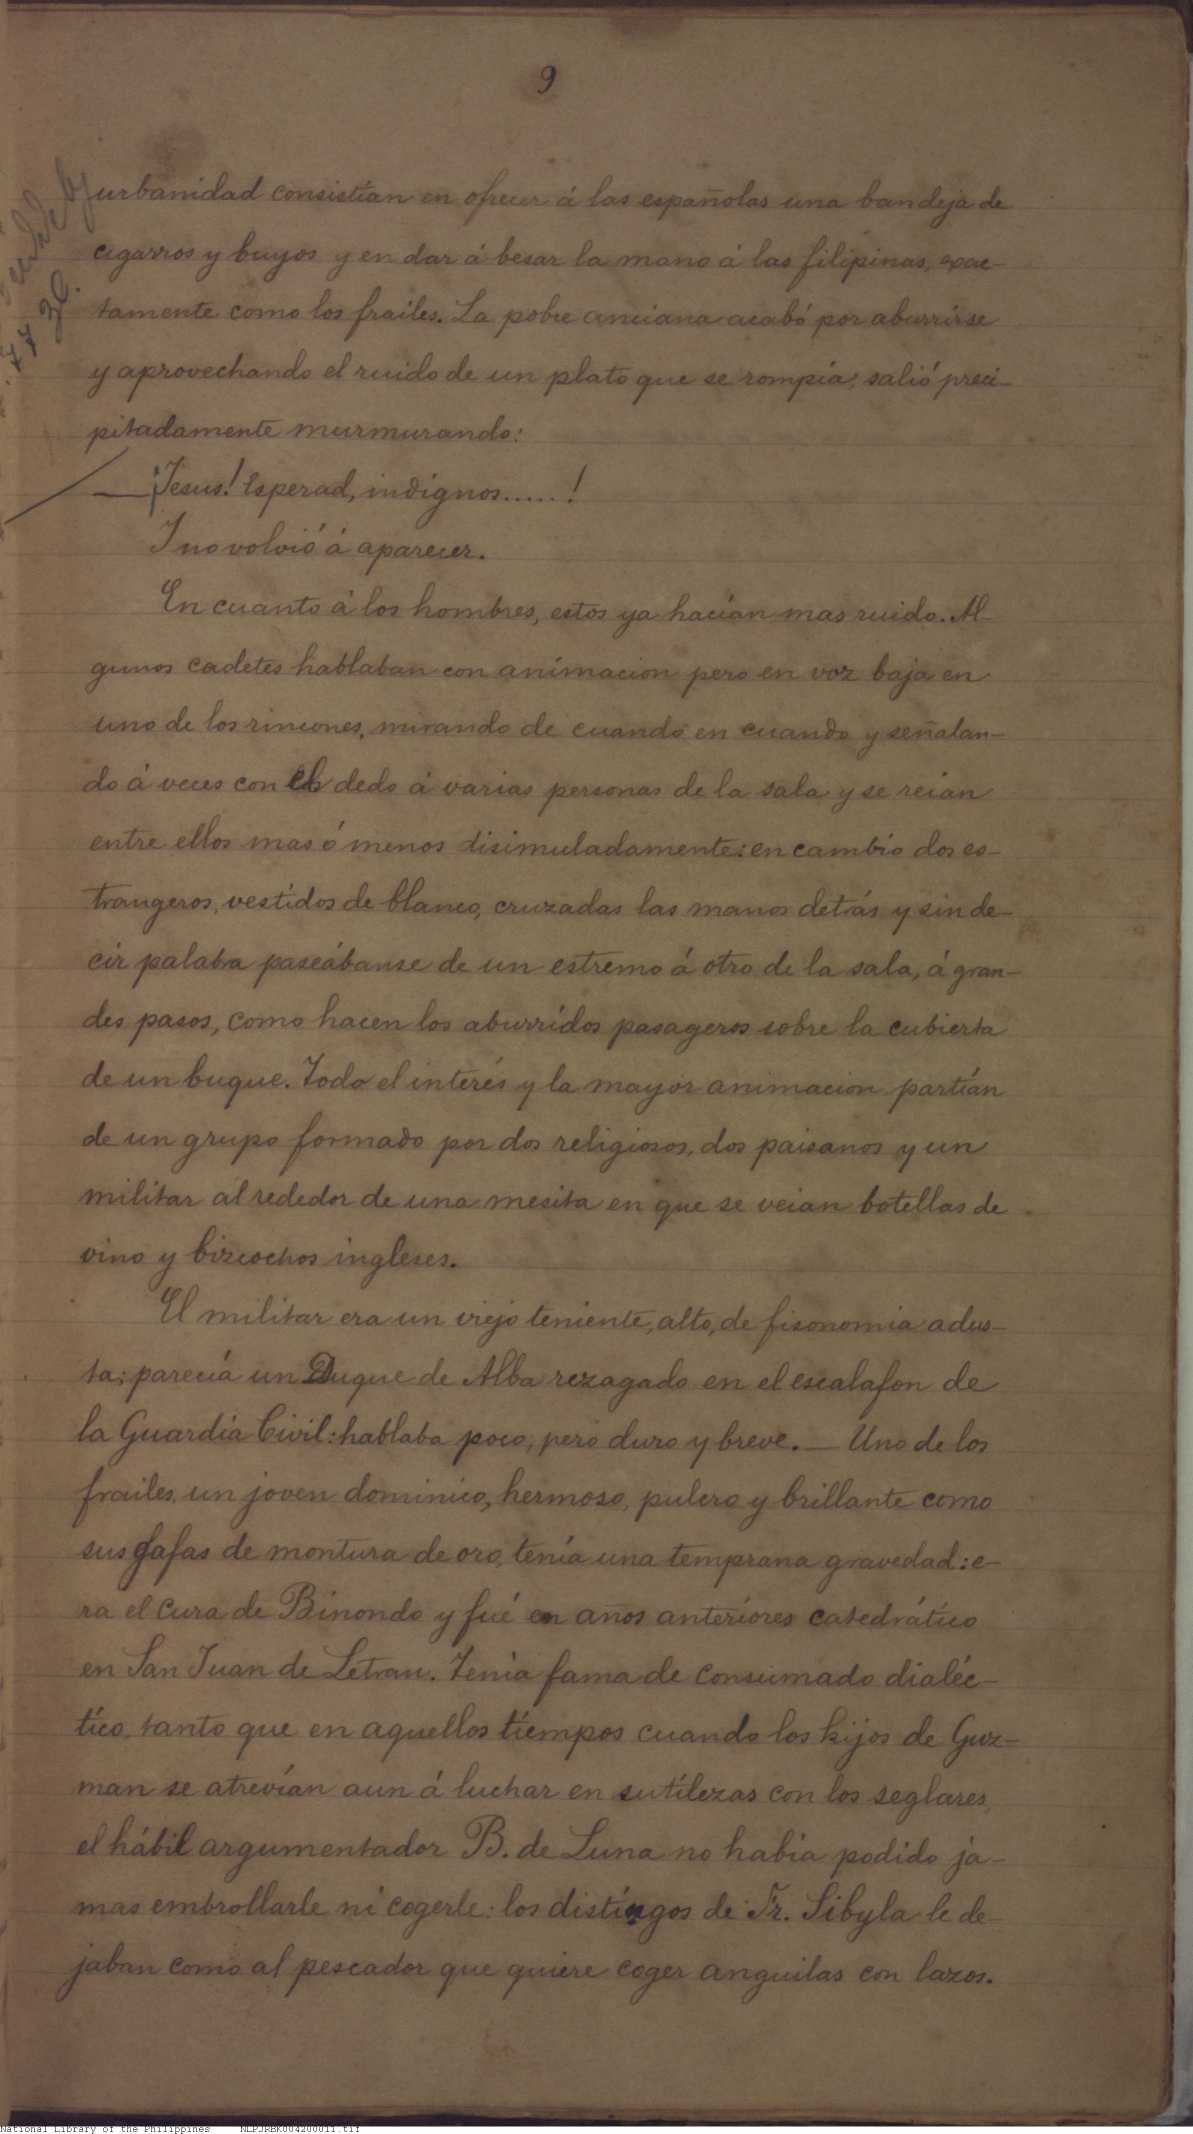 9
urbanidad consistían en ofrecer á las españolas una bandeja de
cigarros y buyos y en dar á besar la mano á las filipinas, exac-
tamente como los frailes. La pobre anciana acabó por aburrirse
y aprovechando el ruido de un plato que se rompía, salió preci-
pitadamente murmurando:
—¡Jesus! Esperad, indignos......!
Y no volvió á aparecer.
En cuanto á los hombres, estos ya hacían mas ruido. Al-
gunos cadetes hablaban con animacion pero en voz baja en
uno de los rincones, mirando de cuando en cuando y señalan-
do á veces con el dedo á varias personas de la sala y se reían
entre ellos mas ó menos disimuladamente: en cambio dos es-
trangeros, vestidos de blanco, cruzadas las manos detrás y sin de-
cir palabra paseábanse de un estremo á otro de la sala, á gran-
des pasos, como hacen los aburridos pasageros sobre la cubierta
de un buque. Todo el interés y la mayor animacion partían
de un grupo formado por dos religiosos, dos paisanos y un
militar al rededor de una mesita en que se veian botellas de
vino y bizcochos ingleses.
El militar era un viejo teniente, alto, de fisonomia adus-
ta; parecía un Duque de Alba rezagado en el escalafon de
la Guardia Civil: hablaba poco, pero duro y breve. — Uno de los
frailes, un joven dominico, hermoso, pulcro y brillante como
sus gafas de montura de oro, tenía una temprana gravedad: e-
ra el cura de Binondo y fué en años anteriores catedrático
en San Juan de Letran. Tenia fama de consumado dialéc-
tico, tanto que en aquellos tiempos cuando los hijos de Guz-
man se atrevían aun á luchar en sutilezas con los seglares,
el hábil argumentador B. de Luna no habia podido ja-
mas embrollarle ni cogerle: los distingos de Fr. Sibyla le de-
jaban como al pescador que quiere coger anguilas con lazos.
National Library of the Philippines NLPJRBK004200011.tif